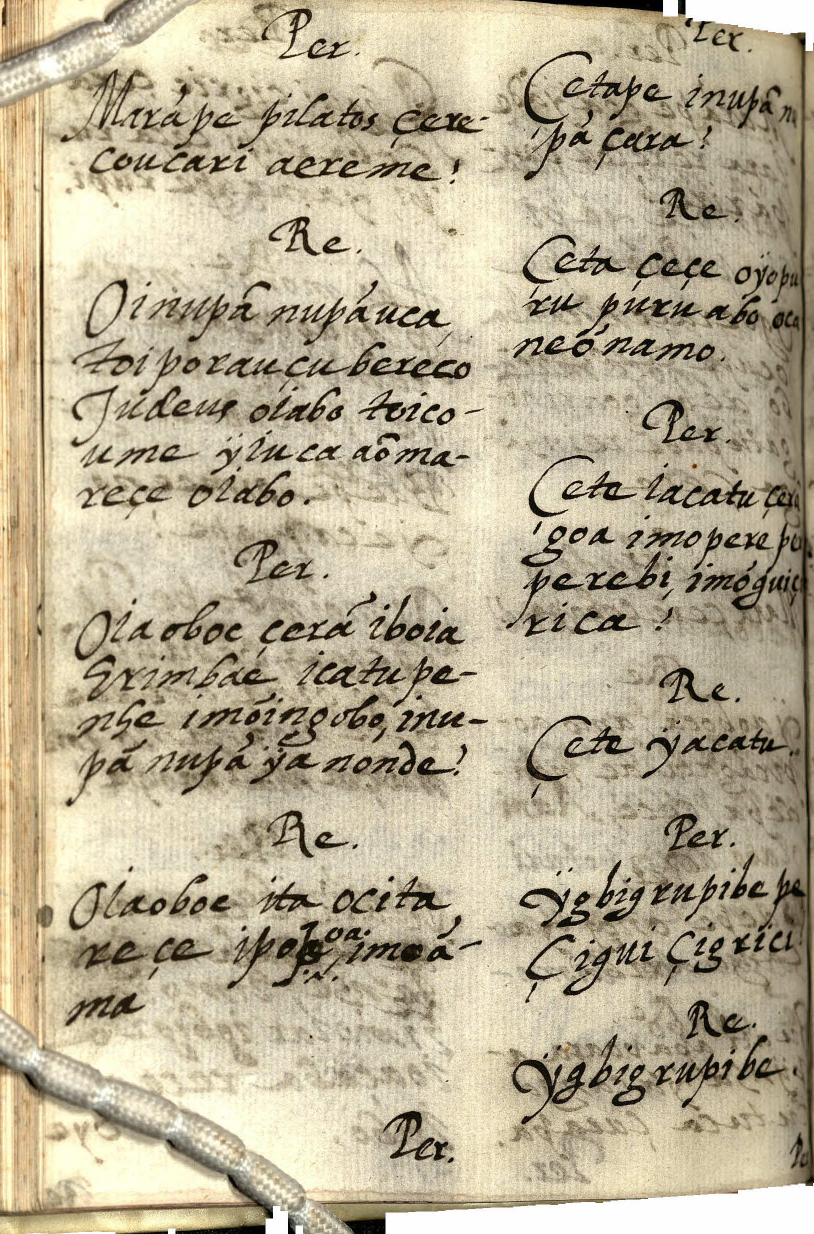 Per.
Marápe pilatos çere-
coucari aereme?
Re.
Oinupã nupáuca,
toiporauçubereco
Judeus oiabo toico-
ume ÿiuca aõma-
reçe oiabo.
Per.
Oiaoboc çerã iboia
Erimbae icatupe-
nhe imoingobo, inu-
pã nupã ÿanonde?
Re.
Oiaoboc ita ocita
reçe imoã-
ma
Per.
Per.
Cetape inupã
pãçara?
Re.
Ceta çeçe
ru puruabo
neõnamo.
Per.
Cete iacatu
goa imopere
perebi,
rica?
Re.
Çete ÿacatu.
Per.
ÿgbigrupibe pe
Çigui
Re.
ÿgbigrupibe.